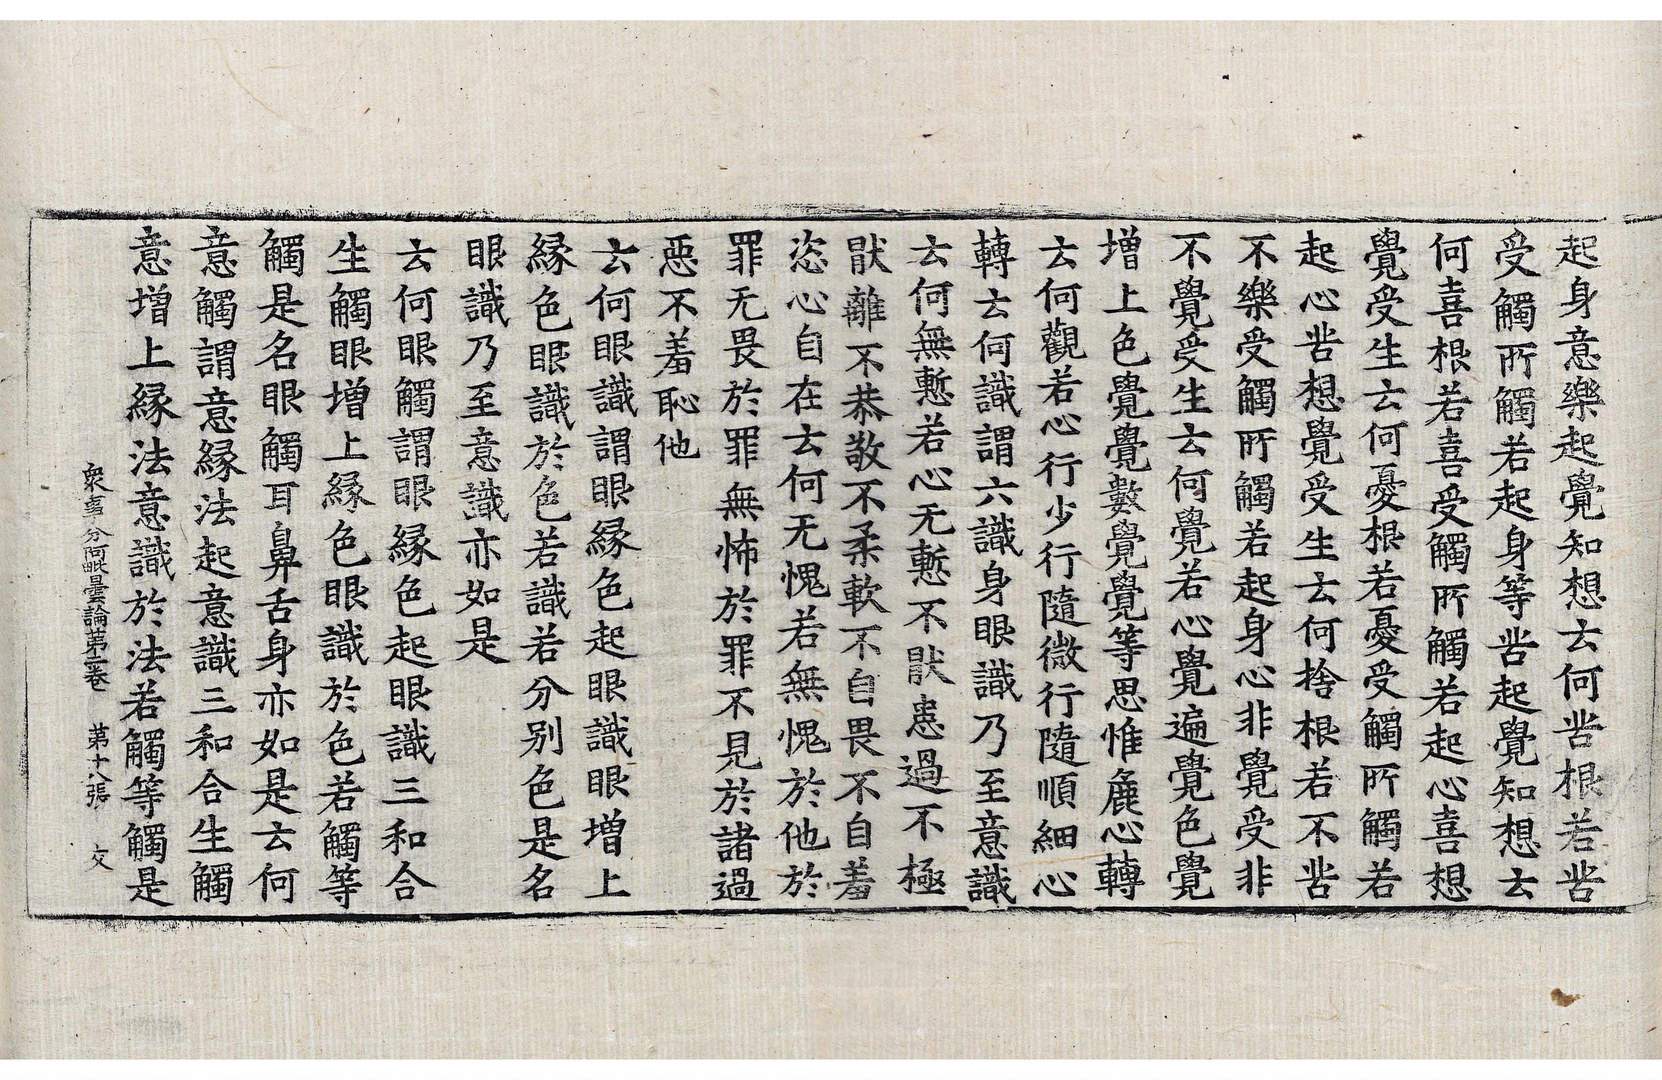 起身意樂起覺知想云何苦根若苦
受觸所觸若起身等苦起覺知想云
何喜根若喜受觸所觸若起心喜想
覺受生云何憂根若憂受觸所觸若
起心苦想覺受生云何捨根若不苦
不樂受觸所觸若起身心非覺受非
不覺受生云何覺若心覺遍覺色覺
增上色覺覺數覺覺等思惟麁心轉
云何觀若心行少行隨微行隨順細心
轉云何識謂六識身眼識乃至意識
云何無慙若心无慙不猒患過不極
猒離不恭敬不柔軟不自畏不自羞
恣心自在云何无愧若無愧於他於
罪无畏於罪無怖於罪不見於諸過
惡不羞恥他
云何眼識謂眼緣色起眼識眼增上
緣色眼識於色若識若分別色是名
眼識乃至意識亦如是
云何眼觸謂眼緣色起眼識三和合
生觸眼增上緣色眼識於色若觸等
觸是名眼觸耳鼻舌身亦如是云何
意觸謂意緣法起意識三和合生觸
意增上緣法意識於法若觸等觸是
衆事分阿毗曇論第卷 第十八張 文